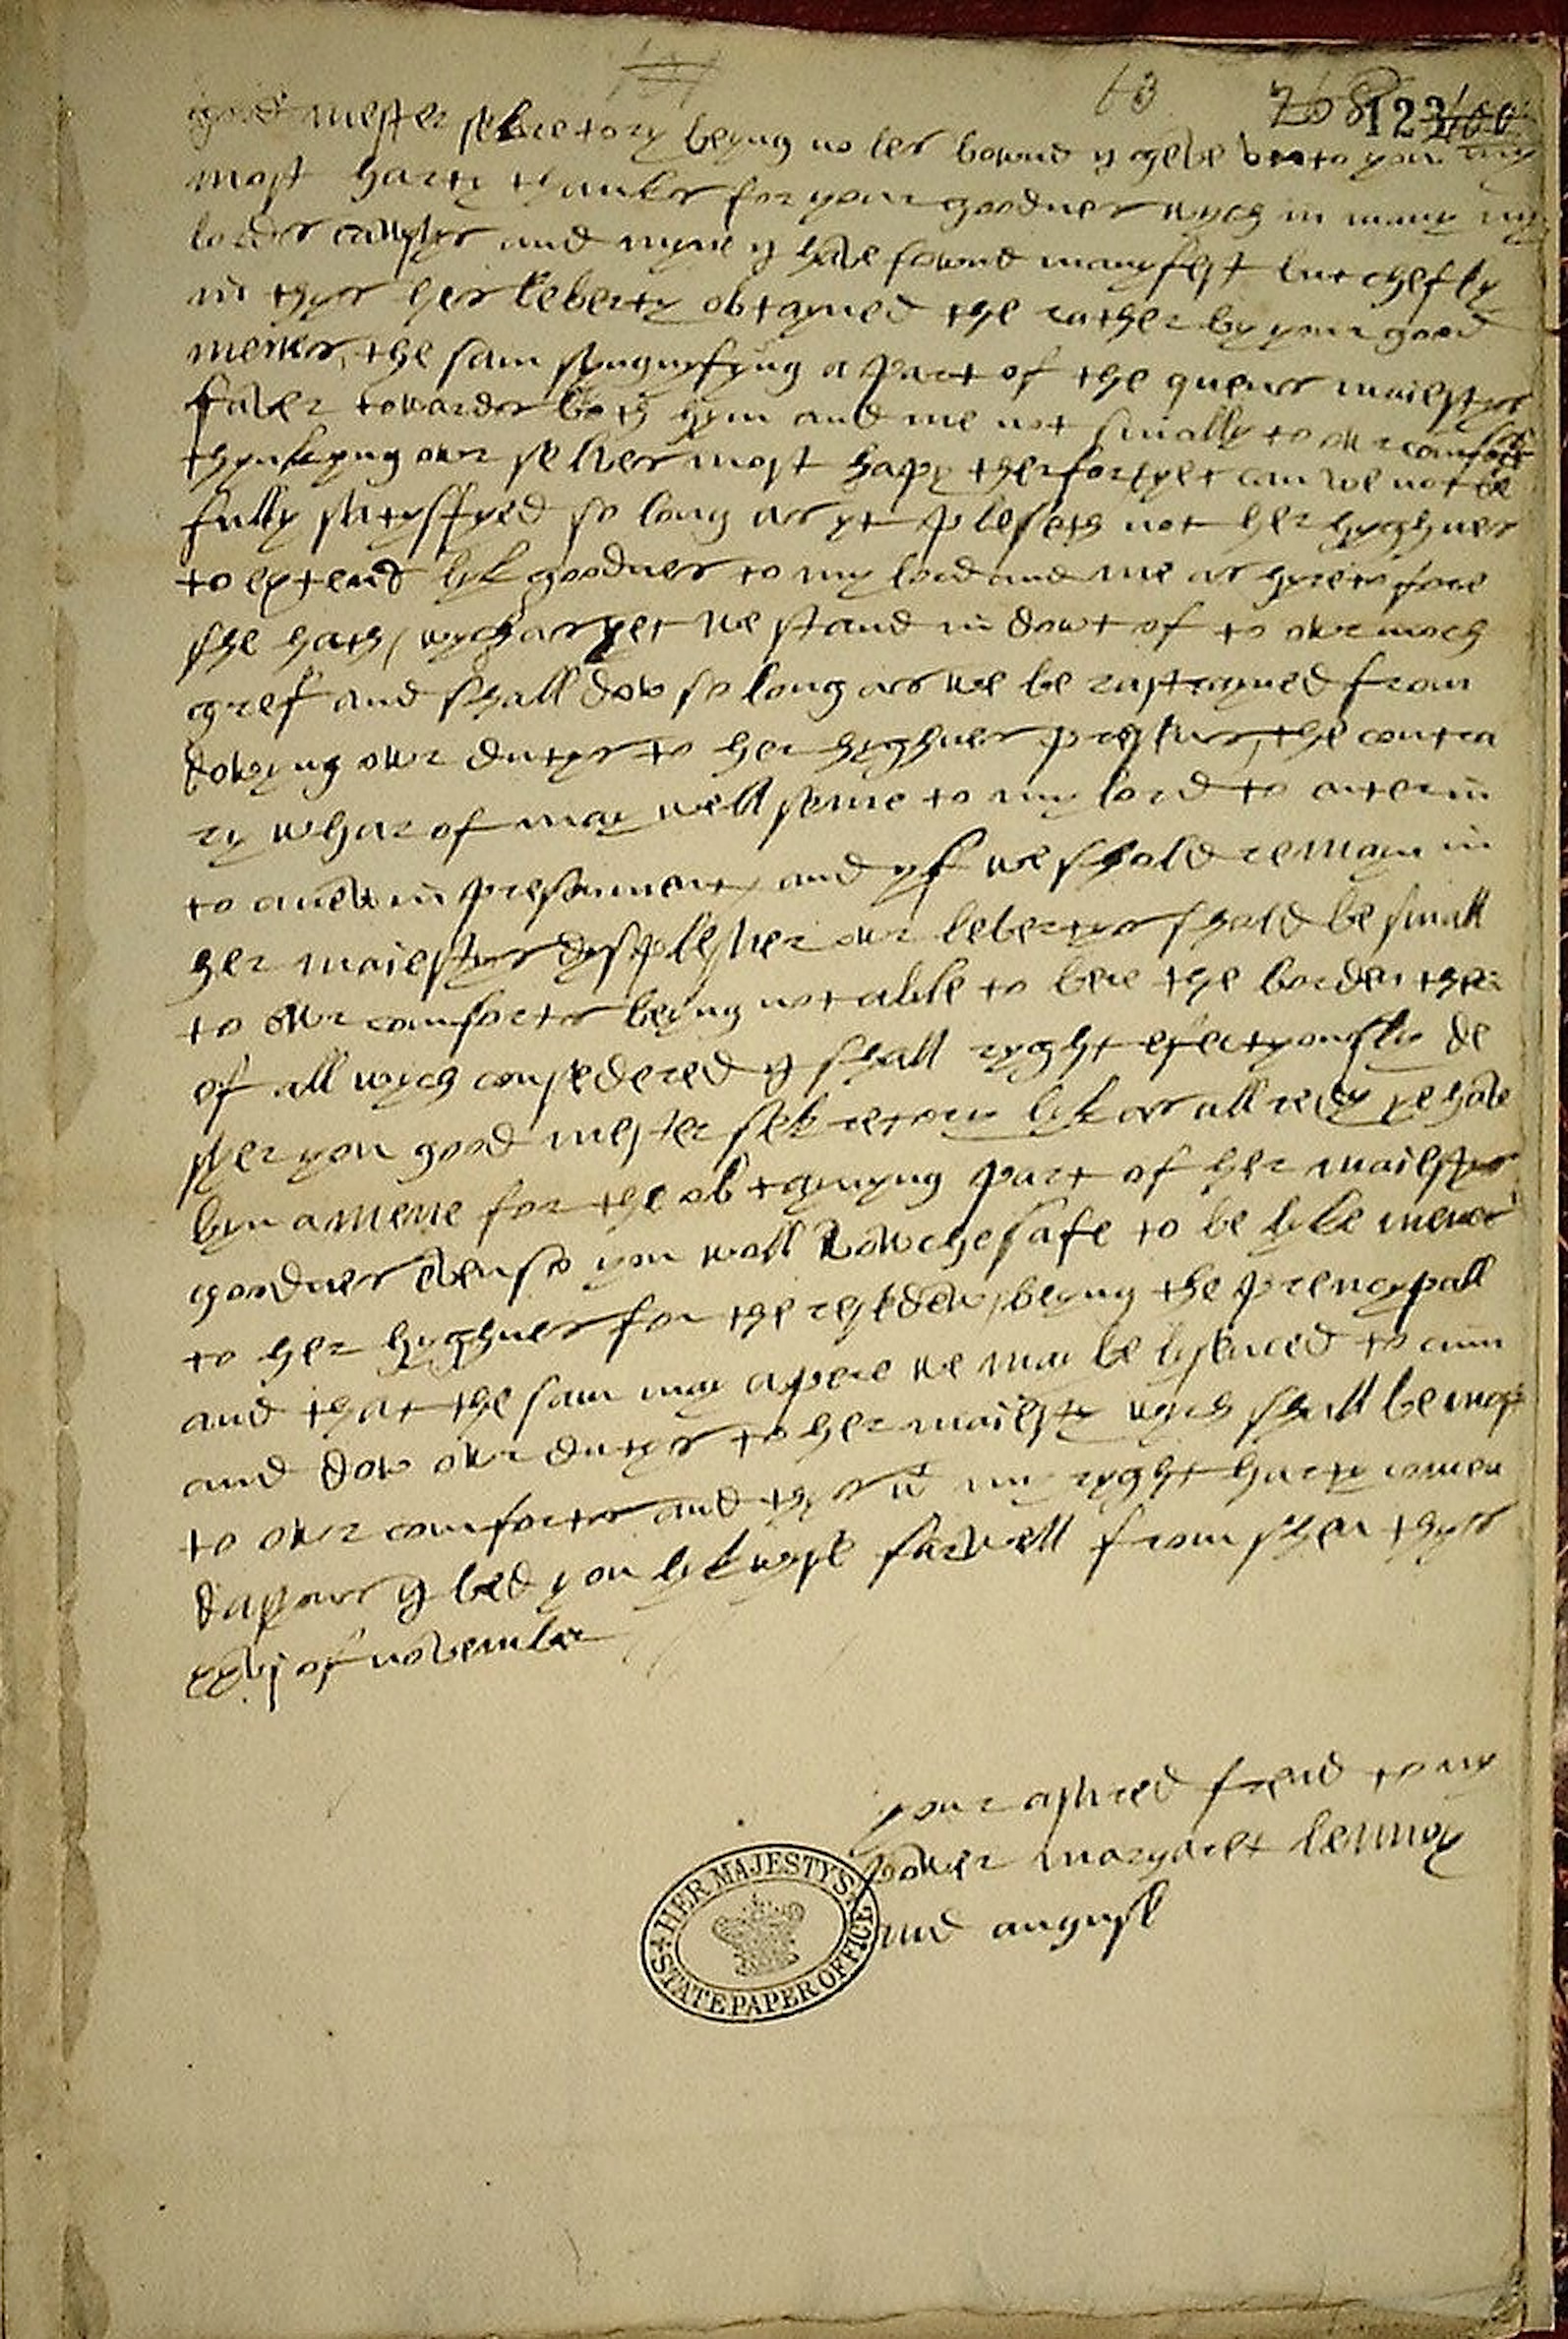 63 768 123 100
good mester sekretory beyng no les bownd y geve vnto you my
most harty thankes for your goodnes wych in many my
lordes cawsys and myne y have fownd manyfest but chefly
in thys hes leberty obtayned the rather by your good
menes, the sam syngnyfyng a part of the quenes maiestys
faver towardes both hym and me not smally to owr comfort
thynkyng owr selves most hapy therfor, yet can we not be
fully satysfyed so long as yt pleseth not her hyghnes
to extend lyk goodnes to my lord and me as hyretofore
she hath, wych as yet we stand in dowt of to owr moch
gref and shall dow so long as we be rastrayned from
dowyng owr dutys to her hyghnes presens, the contra
ry wharof may well seme to my lord to enter in
to a new inpresonment, and yf we shold remayn in
her maiestys dysplesuer owr lebertys shold be small
to owr comfortes beyng not able to bere the borden ther
of all wych consedered y shall ryght efectyously de
syer you good mester sekretory lyk as all redy ye have
byn a mene for the obtaynyng part of her maiestys
goodnes even so you woll vowchesafe to be lyke menes
to her hyghnes for the resedew, beyng the prencypall
and that the sam may apere we may be lysenced to cum
and dow owr dutys to her maiesty wych shall be most
to owr comfortes and thys wt my ryght harty comen
dasyons y bed you lykwyse farwell from shen thys
xxvj of november
your asured frend to my
power margaret lennox
and anguse
HER MAJESTY'S STATE PAPER OFFICE